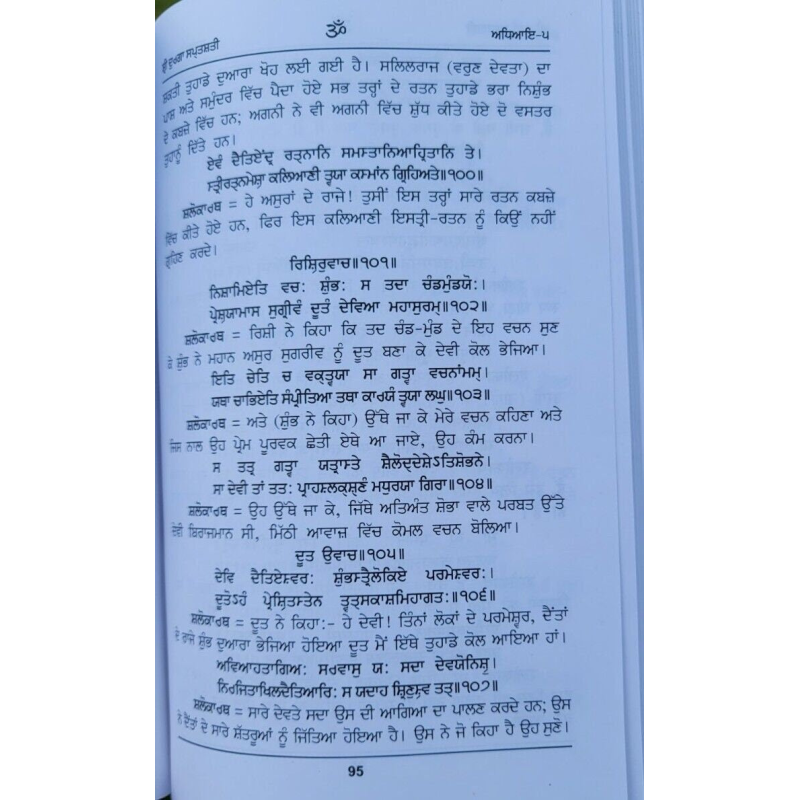 ਸ੍ਰੀ ਦੁਰਗਾ ਸਪ੍ਤਸ਼ਤੀ ੴ ਅਧਿਆਇ-੫
ਸ਼ਕਤੀ ਤੁਹਾਡੇ ਦੁਆਰਾ ਖੋਹ ਲਈ ਗਈ ਹੈ। ਸਲਿਲਰਾਜ (ਵਰੁਣ ਦੇਵਤਾ) ਦਾ
ਪਾਸ਼ ਅਤੇ ਸਮੁੰਦਰ ਵਿੱਚ ਪੈਦਾ ਹੋਏ ਸਭ ਤਰ੍ਹਾਂ ਦੇ ਰਤਨ ਤੁਹਾਡੇ ਭਰਾ ਨਿਸ਼ੁੰਭ
ਦੇ ਕਬਜ਼ੇ ਵਿੱਚ ਹਨ; ਅਗਨੀ ਨੇ ਵੀ ਅਗਨੀ ਵਿੱਚ ਸ਼ੁੱਧ ਕੀਤੇ ਹੋਏ ਦੋ ਵਸਤਰ
ਤੁਹਾਨੂੰ ਦਿੱਤੇ ਹਨ।
ਏਵੰ ਦੈਤਿਏਂਦ੍ਰ ਰਤ੍ਨਾਨਿ ਸਮਸਤਾਨਿਆਹ੍ਰਿਤਾਨਿ ਤੇ।
ਸ੍ਤ੍ਰੀਰਤ੍ਨਮੇਸ਼ਾ ਕਲਿਆਣੀ ਤ੍ਵਯਾ ਕਸਮਾਂਨ ਗ੍ਰਿਹਿਅਤੇ॥੧੦੦॥
ਸ਼ਲੋਕਾਰਥ = ਹੇ ਅਸੁਰਾਂ ਦੇ ਰਾਜੇ! ਤੁਸੀਂ ਇਸ ਤਰ੍ਹਾਂ ਸਾਰੇ ਰਤਨ ਕਬਜ਼ੇ
ਵਿੱਚ ਕੀਤੇ ਹੋਏ ਹਨ, ਫਿਰ ਇਸ ਕਲਿਆਣੀ ਇਸਤ੍ਰੀ-ਰਤਨ ਨੂੰ ਕਿਉਂ ਨਹੀਂ
ਗ੍ਰਹਿਣ ਕਰਦੇ।
ਰਿਸ਼ਿਰੁਵਾਚ॥੧੦੧॥
ਨਿਸ਼ਾਮਿਏਤਿ ਵਚਃ ਸ਼ੁੰਭਃ ਸ ਤਦਾ ਚੰਡਮੁੰਡਯੋਃ।
ਪ੍ਰੇਸ਼ਯਾਮਾਸ ਸੁਗ੍ਰੀਵੰ ਦੂਤੰ ਦੇਵਿਆ ਮਹਾਸੁਰਮ੍॥੧੦੨॥
ਸ਼ਲੋਕਾਰਥ = ਰਿਸ਼ੀ ਨੇ ਕਿਹਾ ਕਿ ਤਦ ਚੰਡ-ਮੁੰਡ ਦੇ ਇਹ ਵਚਨ ਸੁਣ
ਕੇ ਸ਼ੁੰਭ ਨੇ ਮਹਾਨ ਅਸੁਰ ਸੁਗਰੀਵ ਨੂੰ ਦੂਤ ਬਣਾ ਕੇ ਦੇਵੀ ਕੋਲ ਭੇਜਿਆ।
ਇਤਿ ਚੇਤਿ ਚ ਵਕ੍ਤ੍ਵਯਾ ਸਾ ਗਤ੍ਵਾ ਵਚਨਾਂਮਮ੍।
ਯਥਾ ਚਾਭਿਏਤਿ ਸੰਪ੍ਰੀਤਿਆ ਤਥਾ ਕਾਰਯੰ ਤ੍ਵਯਾ ਲਘੁ॥੧੦੩॥
ਸ਼ਲੋਕਾਰਥ = ਅਤੇ (ਸ਼ੁੰਭ ਨੇ ਕਿਹਾ) ਉੱਥੇ ਜਾ ਕੇ ਮੇਰੇ ਵਚਨ ਕਹਿਣਾ ਅਤੇ
ਜਿਸ ਨਾਲ ਉਹ ਪ੍ਰੇਮ ਪੂਰਵਕ ਛੇਤੀ ਏਥੇ ਆ ਜਾਏ, ਉਹ ਕੰਮ ਕਰਨਾ।
ਸ ਤਤ੍ਰ ਗਤ੍ਵਾ ਯਤ੍ਰਾਸਤੇ ਸ਼ੈਲੋਦ੍ਦੇਸ਼ੇऽਤਿਸ਼ੋਭਨੇ।
ਸਾ ਦੇਵੀ ਤਾਂ ਤਤਃ ਪ੍ਰਾਹਸ਼ਲਕ੍ਸ਼ਣੰ ਮਧੁਰਯਾ ਗਿਰਾ॥੧੦੪॥
ਸ਼ਲੋਕਾਰਥ = ਉਹ ਉੱਥੇ ਜਾ ਕੇ, ਜਿੱਥੇ ਅਤਿਅੰਤ ਸ਼ੋਭਾ ਵਾਲੇ ਪਰਬਤ ਉੱਤੇ
ਦੇਵੀ ਬਿਰਾਜਮਾਨ ਸੀ, ਮਿੱਠੀ ਆਵਾਜ਼ ਵਿੱਚ ਕੋਮਲ ਵਚਨ ਬੋਲਿਆ।
ਦੂਤ ਉਵਾਚ॥੧੦੫॥
ਦੇਵਿ ਦੈਤਿਏਸ਼ਵਰਃ ਸ਼ੁੰਭਸਤ੍ਰੈਲੋਕਿਏ ਪਰਮੇਸ਼ਵਰਃ।
ਦੂਤੋऽਹੰ ਪ੍ਰੇਸ਼ਿਤਸਤੇਨ ਤ੍ਵਤ੍ਸਕਾਸ਼ਮਿਹਾਗਤਃ॥੧੦੬॥
ਸ਼ਲੋਕਾਰਥ = ਦੂਤ ਨੇ ਕਿਹਾ:- ਹੇ ਦੇਵੀ! ਤਿੰਨਾਂ ਲੋਕਾਂ ਦੇ ਪਰਮੇਸ਼੍ਵਰ, ਦੈਂਤਾਂ
ਦੇ ਰਾਜੇ ਸ਼ੁੰਭ ਦੁਆਰਾ ਭੇਜਿਆ ਹੋਇਆ ਦੂਤ ਮੈਂ ਇੱਥੇ ਤੁਹਾਡੇ ਕੋਲ ਆਇਆ ਹਾਂ।
ਅਵਿਆਹਤਾਗਿਅਃ ਸਰਵਾਸੁ ਯਃ ਸਦਾ ਦੇਵਯੋਨਿਸ਼ੁ।
ਨਿਰਜਿਤਾਖਿਲਦੈਤਿਆਰਿਃ ਸ ਯਦਾਹ ਸ਼੍ਰਿਣੁਸ਼ਵ ਤਤ੍॥੧੦੭॥
ਸ਼ਲੋਕਾਰਥ = ਸਾਰੇ ਦੇਵਤੇ ਸਦਾ ਉਸ ਦੀ ਆਗਿਆ ਦਾ ਪਾਲਣ ਕਰਦੇ ਹਨ; ਉਸ
ਨੇ ਦੈਂਤਾਂ ਦੇ ਸਾਰੇ ਸ਼ੱਤਰੂਆਂ ਨੂੰ ਜਿੱਤਿਆ ਹੋਇਆ ਹੈ। ਉਸ ਨੇ ਜੋ ਕਿਹਾ ਹੈ ਉਹ ਸੁਣੋ।
95